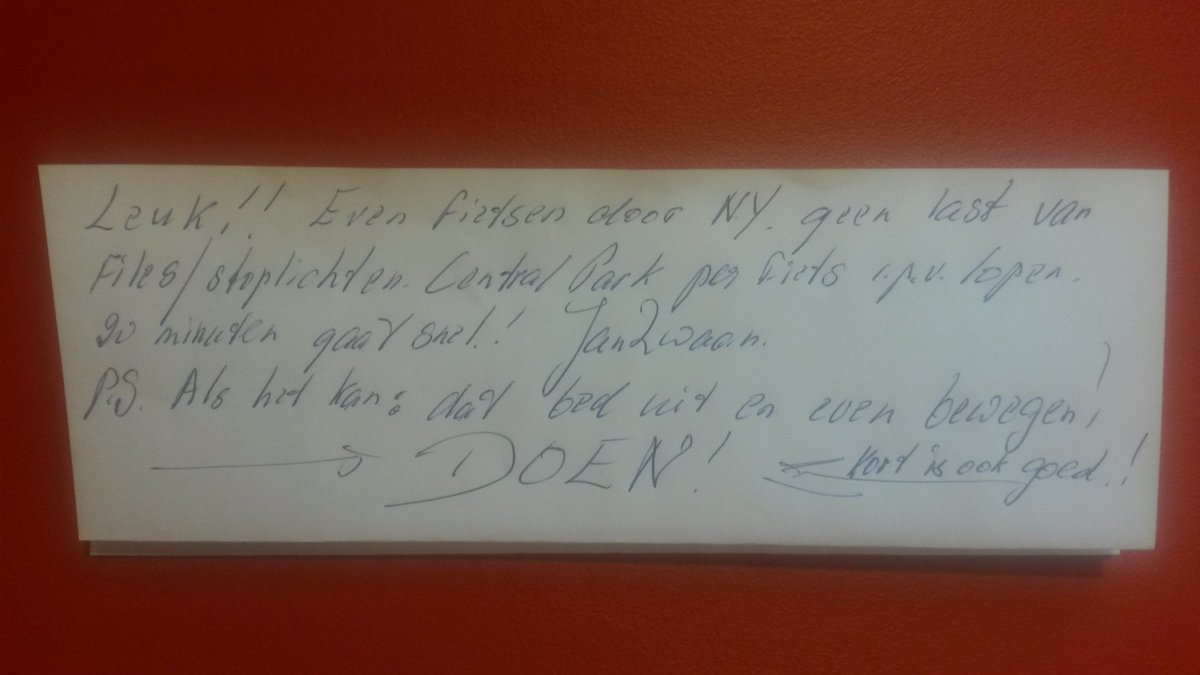 Leuk!! Even fietsen door N.Y. geen last van
Files/stoplichten. Central Park per fiets i.p.v. lopen.
20 minuten gaat snel!! Jan Zwaan.
P.S. Als het kan: dat bed uit en even bewegen!
DOEN! Kort is ook goed!!